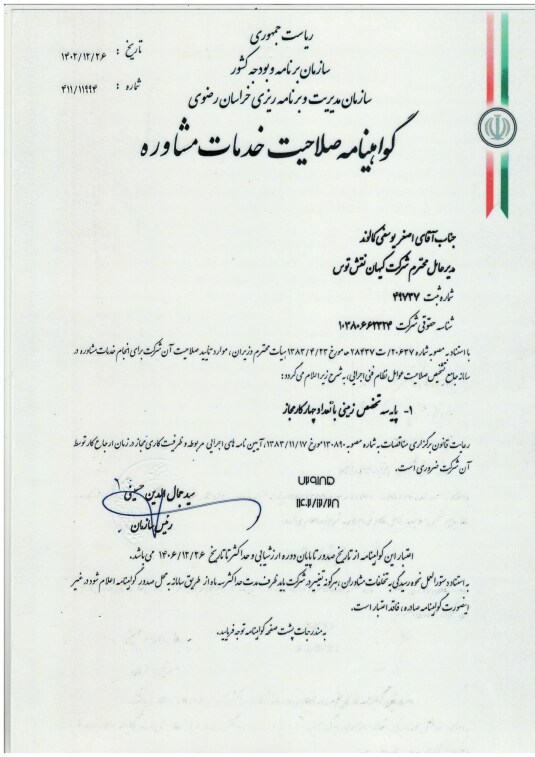 ریاست جمهوری
سازمان برنامه و بودجه کشور
سازمان مدیریت و برنامه ریزی خراسان رضوی
تاریخ : ۱۴۰۲/۱۲/۲۶
شماره : ۴۱۱/۱۱۹۹۴
گواهینامه صلاحیت خدمات مشاوره
جناب آقای اصغر یوسفی کالوند
مدیرعامل محترم شرکت کیهان نقش توس
شماره ثبت ۴۹۷۳۷
شناسه حقوقی شرکت ۱۰۳۸۰۶۶۲۳۲۴
با استناد به مصوبه شماره ۲۰۶۳۷/ت ۲۸۴۳۷ ه مورخ ۱۳۸۳/۴/۲۳ هیات محترم وزیران، موارد تایید صلاحیت آن شرکت برای انجام خدمات مشاوره در
سامانه جامع تشخیص صلاحیت عوامل نظام فنی اجرایی، به شرح زیر اعلام می گردد:
۱- پایه سه تخصص زمینی با تعداد چهار کار مجاز
رعایت قانون برگزاری مناقصات به شماره مصوبه ۱۳۰۸۹۰ مورخ ۱۳۸۳/۱۱/۱۷، آیین نامه های اجرایی مربوطه و ظرفیت کاری مجاز در زمان ارجاع کار توسط
آن شرکت ضروری است.
سید جمال الدین حسینی
رئیس سازمان
اعتبار این گواهینامه از تاریخ صدور تا پایان دوره ارزشیابی و حداکثر تا تاریخ ۱۴۰۶/۱۲/۲۶ می باشد.
به استناد دستورالعمل نحوه رسیدگی به تخلفات مشاوران، هرگونه تغییر در شرکت باید ظرف مدت حداکثر سه ماه از طریق سامانه به محل صدور گواهینامه اعلام شود در غیر
اینصورت گواهینامه صادره، فاقد اعتبار است.
به مندرجات پشت صفحه گواهینامه توجه فرمایید.